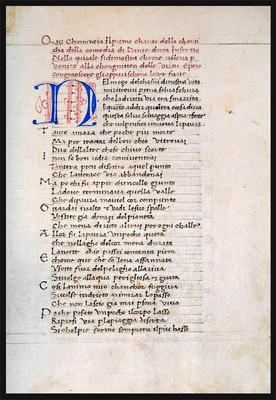 Qui Chomincia ilprimo chanto della chanti
cha della comedia di Dante detta Inferno
Nella quale sidimostra chome voleva p
venire alla chongnition delle virtu Epero
Nel mezo delchamin dinostra vita
miritrovai peruna selva schura
che ladiritta via era smarrita
Equanto adire qualera cosa dura
questa selva selvaggia aspra forte
che nelpensier rinuova lapaura
Tante amara che pocho piu morte
Ma per trattar delben chio vitrovai
Diro dellaltre chose chivo scorte
I non so ben ridir chomio
Tantera pien disonno aquel punto
Che laverace via abbandonai
Ma po chi fui appie dun colle giunto
Ladove terminava quella valle
Che dipaura mavie il cor compunto
Guardai inalto vidi lesue spalle
Vestite gia deraggi del pianeta
Che mena diritto altrui per ogni challe
Allor fu lapaura unpocho queta
Che nellagho delcor mera durata
Lanotte chio passai cotanta pieta
E chome que che co lena affannata
Uscito fuor delpelagho allariva
Sivolge allaqua perigliosa et guata
Cosi lanimo mio chanchor fuggiva
Sivolse indietro arimirar Lopasso
Che non lascio gia mai persona viva
Poche posato unpocho ilcorpo Lasso
Ripresi via plapiaggia diserta
Siche lpie fermo sempre era ilpiu basso